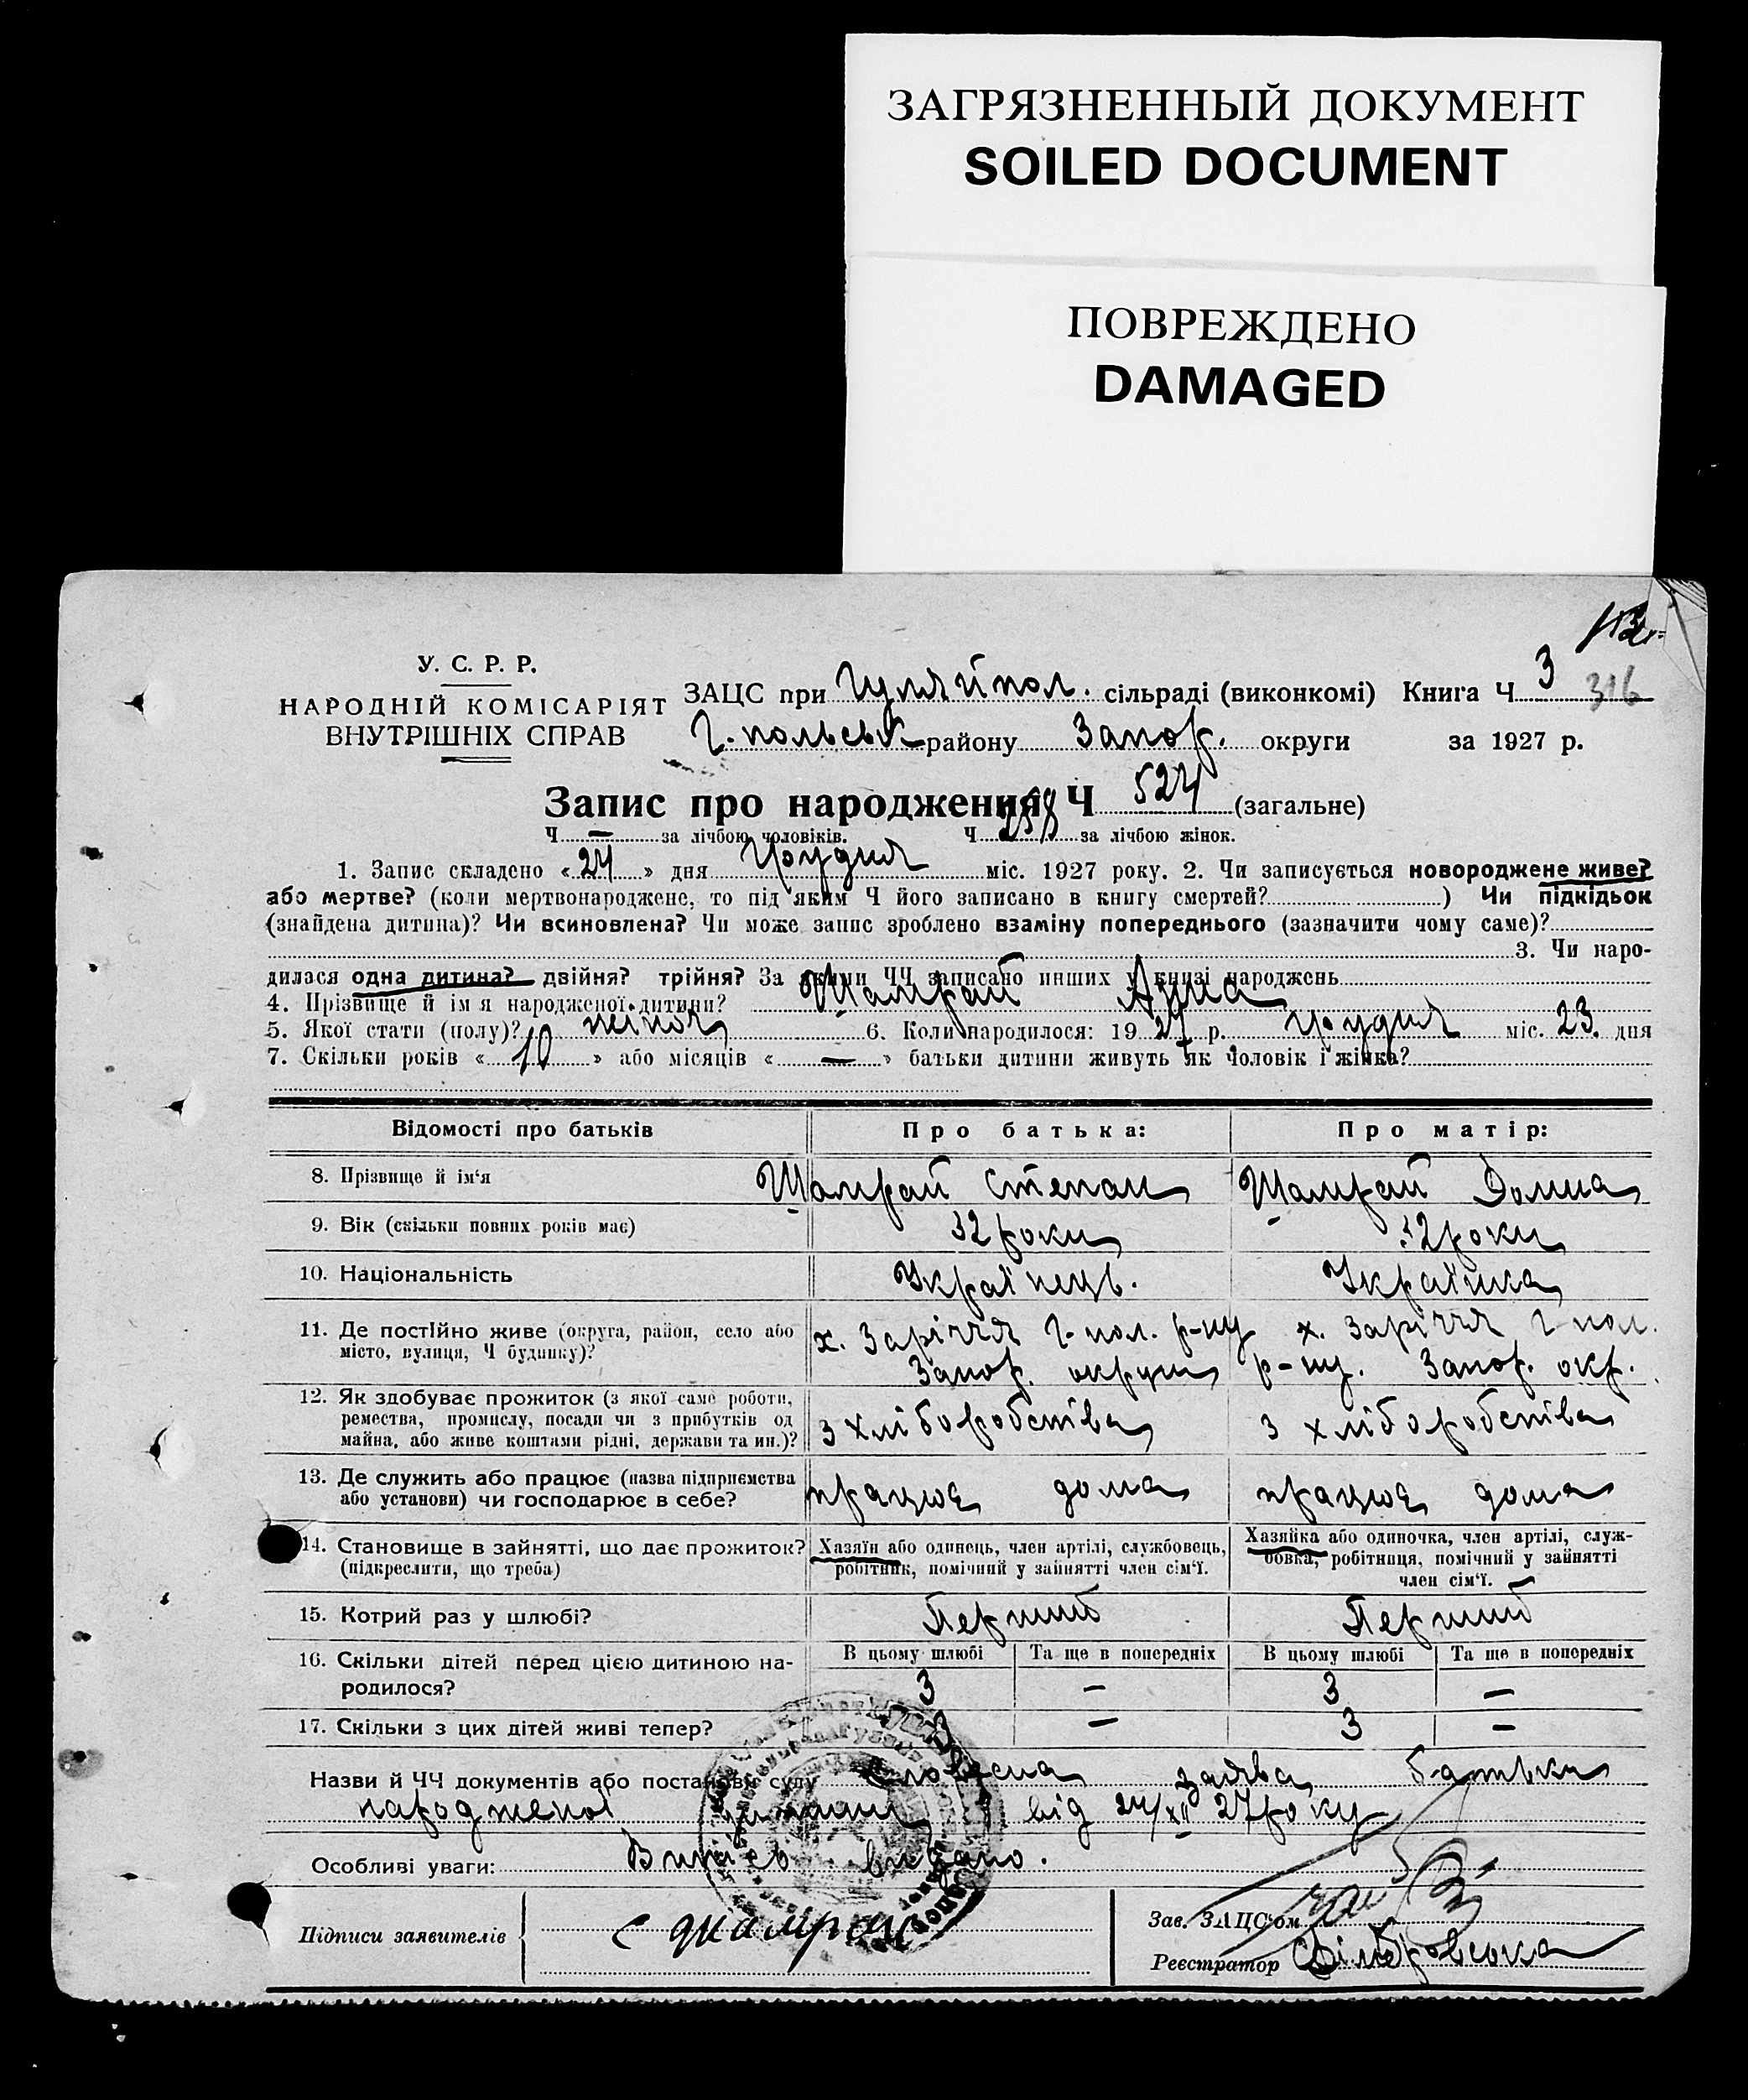 ЗАГРЯЗНЕННЫЙ ДОКУМЕНТ
SOILED DOCUMENT
ПОВРЕЖДЕНО
DAMAGED
У. С. Р. Р.
НАРОДНІЙ КОМІСАРІЯТ
ВНУТРІШНІХ СПРАВ
ЗАЦС при Гуляйпол. сільраді (виконкомі) Книга Ч. 3 316
Г.польськ району Запор. округи за 1927 р.
Запис про народження Ч 524 (загальне)
Ч — за лічбою чоловіків. Ч 258 за лічбою жінок.
1. Запис складено «24» дня Грудня міс. 1927 року. 2. Чи записується новороджене живе?
або мертве? (коли мертвонароджене, то під яким Ч його записано в книгу смертей? ) Чи підкідьок
(знайдена дитина)? Чи всиновлена? Чи може запис зроблено взаміну попереднього (зазначити чому саме)?
3. Чи наро-
дилася одна дитина? двійня? трійня? За якими ЧЧ записано инших у книзі народжень
4. Прізвище й ім'я народженої дитини? Шамрай Анна
5. Якої стати (полу)? жіноч 6. Коли народилося: 1927 р. грудня міс. 23. дня
7. Скільки років «10» або місяців «—» батьки дитини живуть як чоловік і жінка?
Відомості про батьків Про батька: Про матір:
8. Прізвище й ім'я Шамрай Степан Шамрай Домна
9. Вік (скільки повних років має) 32 роки 32 роки
10. Національність Українець. Українка
11. Де постійно живе (округа, район, село або місто, вулиця, Ч будинку)? х. Заріччя Г-пол. р-ну х. Заріччя Г-пол.
Запор. округи р-ну. Запор. окр.
12. Як здобуває прожиток (з якої саме роботи,
ремества, промислу, посади чи з прибутків од
майна, або живе коштами рідні, держави та ин.)? з хліборобства з хліборобства
13. Де служить або працює (назва підприємства
або установи) чи господарює в себе? працює дома працює дома
14. Становище в зайнятті, що дає прожиток?
(підкреслити, що треба)
Хазяїн або одинець, член артілі, службовець,
робітник, помічний у зайнятті член сім'ї.
Хазяйка або одиночка, член артілі, служ-
бовка, робітниця, помічний у зайнятті
член сім'ї.
15. Котрий раз у шлюбі? Перший Перший
16. Скільки дітей перед цією дитиною на-
родилося?
В цьому шлюбі Та ще в попередніх В цьому шлюбі Та ще в попередніх
3 — 3 —
17. Скільки з цих дітей живі тепер? 3 — 3 —
Назви й ЧЧ документів або постанови суду Словесна заява батьки
народженої дитини від 24/XII 27 року
Особливі уваги: Витяг видано.
Підписи заявителів
Зав. ЗАЦС'ом
Реєстратор